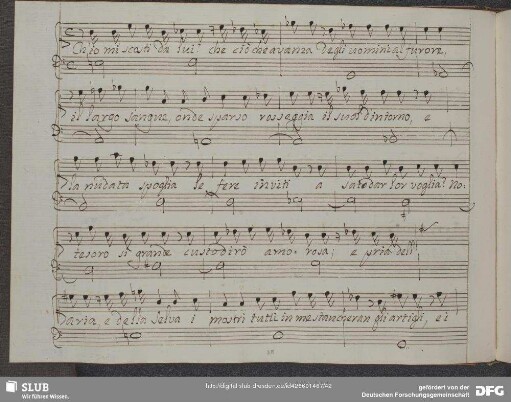 Ch'io mi scosti da lui! che ciò che avanza degli uomini al furore,
il largo sangue, onde sparso rosseggia il suol d'intorno, e
la nudata spoglia le fere inviti a satodar lor voglia! No:
tesoro si grande custodirò amo: rosa; e pria dell'
aria, e della selva i mostri tutti in me stancheran gli artigli, e i
SLUB
Wir führen Wissen.
gefördert von der
Deutschen Forschungsgemeinschaft
DFG